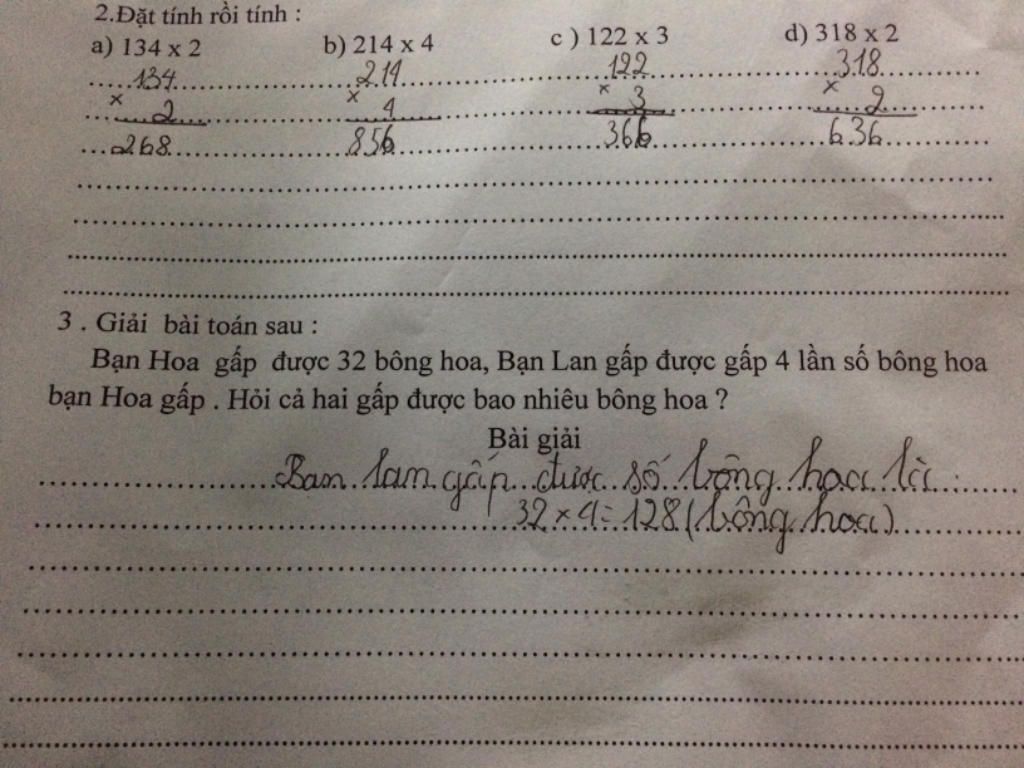 2.Đặt tính rồi tính :
a) 134 x 2 b) 214 x 4 c ) 122 x 3 d) 318 x 2
134 214 122 318
x 2 x 4 x 3 x 2
268 856 366 636
3 . Giải bài toán sau :
Bạn Hoa gấp được 32 bông hoa, Bạn Lan gấp được gấp 4 lần số bông hoa
bạn Hoa gấp . Hỏi cả hai gấp được bao nhiêu bông hoa ?
Bài giải
Ban lan gấp được số bông hoa là :
32 x 4 = 128 (bông hoa)